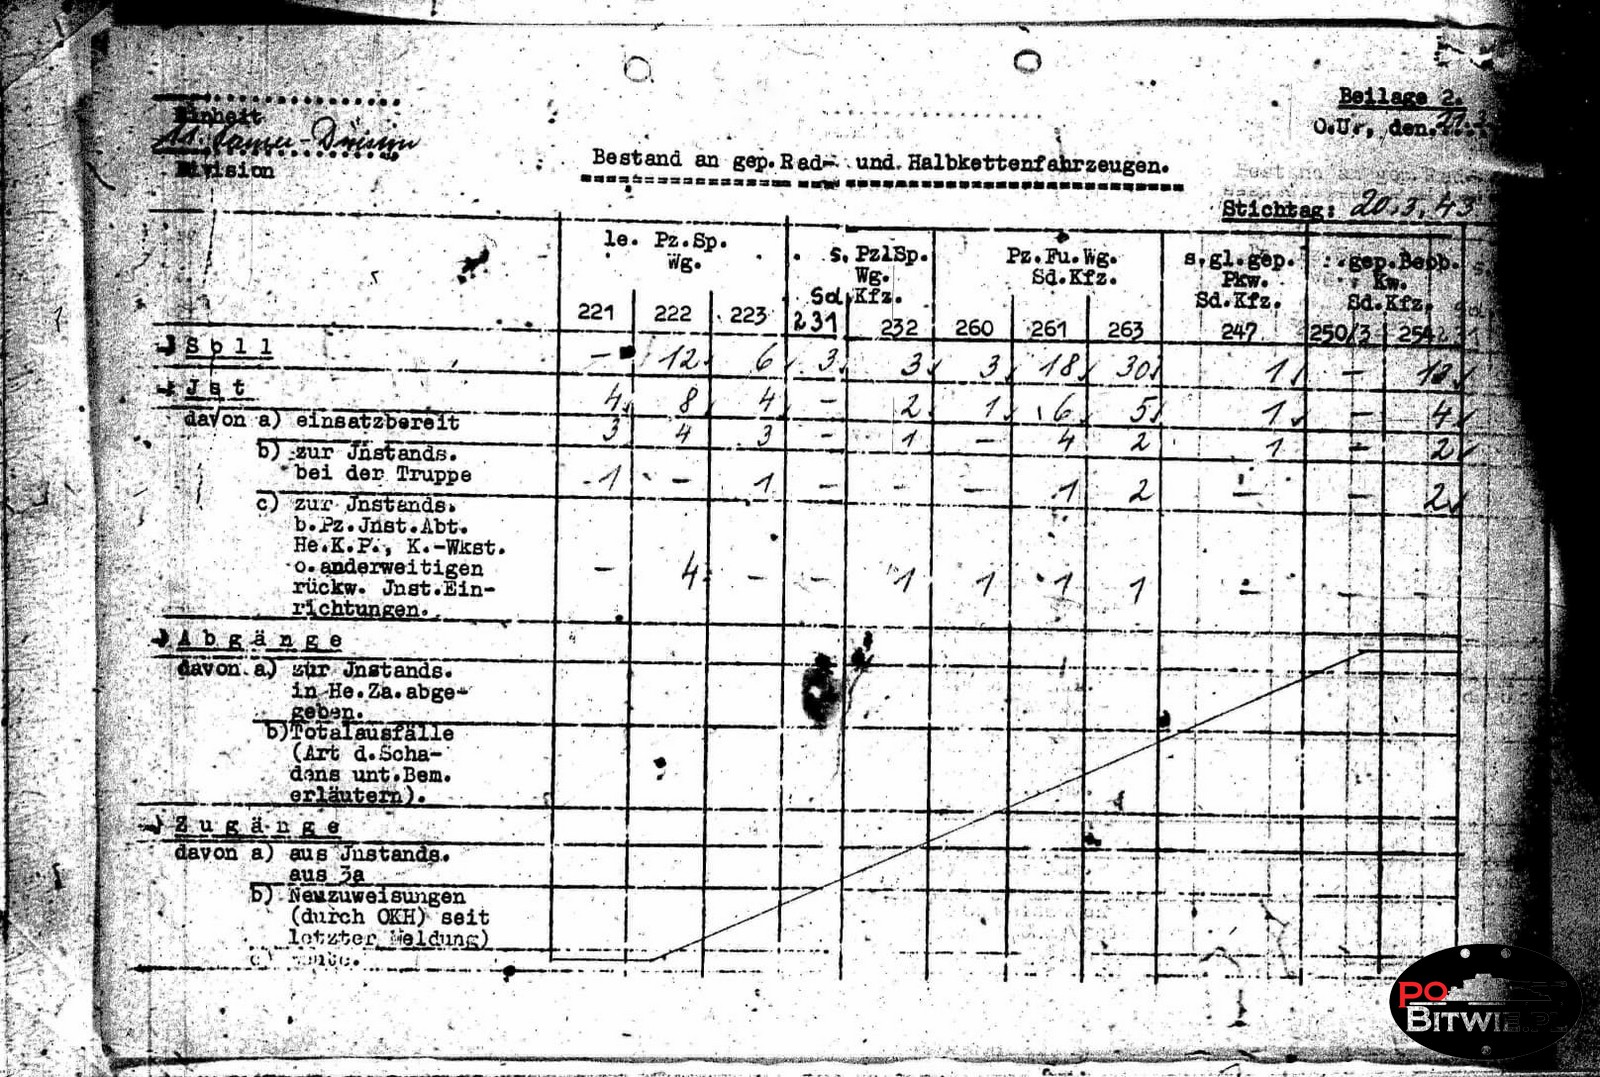 Beilage 2.
Einheit
O.U., den 21.
11. Panzer-Division
Bestand an gep. Rad- und Halbkettenfahrzeugen.
Division
Stichtag: 20.3.43
le. Pz.Sp. Wg. s. PzlSp. Wg. Sd Kfz. Pz.Fu.Wg. Sd.Kfz. s.gl.gep. Pkw. Sd.Kfz. gep.Beob. Kw. Sd.Kfz.
221 222 223 231 232 260 261 263 247 250/3 254
Soll – 12 6 3 3 3 18 30 1 –
Jst 4 8 4 – 2 1 6 5 1 – 4
davon a) einsatzbereit 3 4 3 – 1 – 4 2 1 – 2
b) zur Jnstands.
bei der Truppe 1 – 1 – – – 1 2 – – 2
c) zur Jnstands.
b.Pz.Jnst.Abt.
He.K.P., K.-Wkst.
o.anderweitigen – 4 – – 1 1 1 1 – – –
rückw. Jnst.Ein-
richtungen.
Abgänge
davon a) zur Jnstands.
in He.Za.abge-
geben.
b)Totalausfälle
(Art d.Scha-
dens unt.Bem.
erläutern).
Zugänge
davon a) aus Jnstands.
aus 3a
b) Neuzuweisungen
(durch OKH) seit
letzter Meldung)
PO
BITWIE.PL